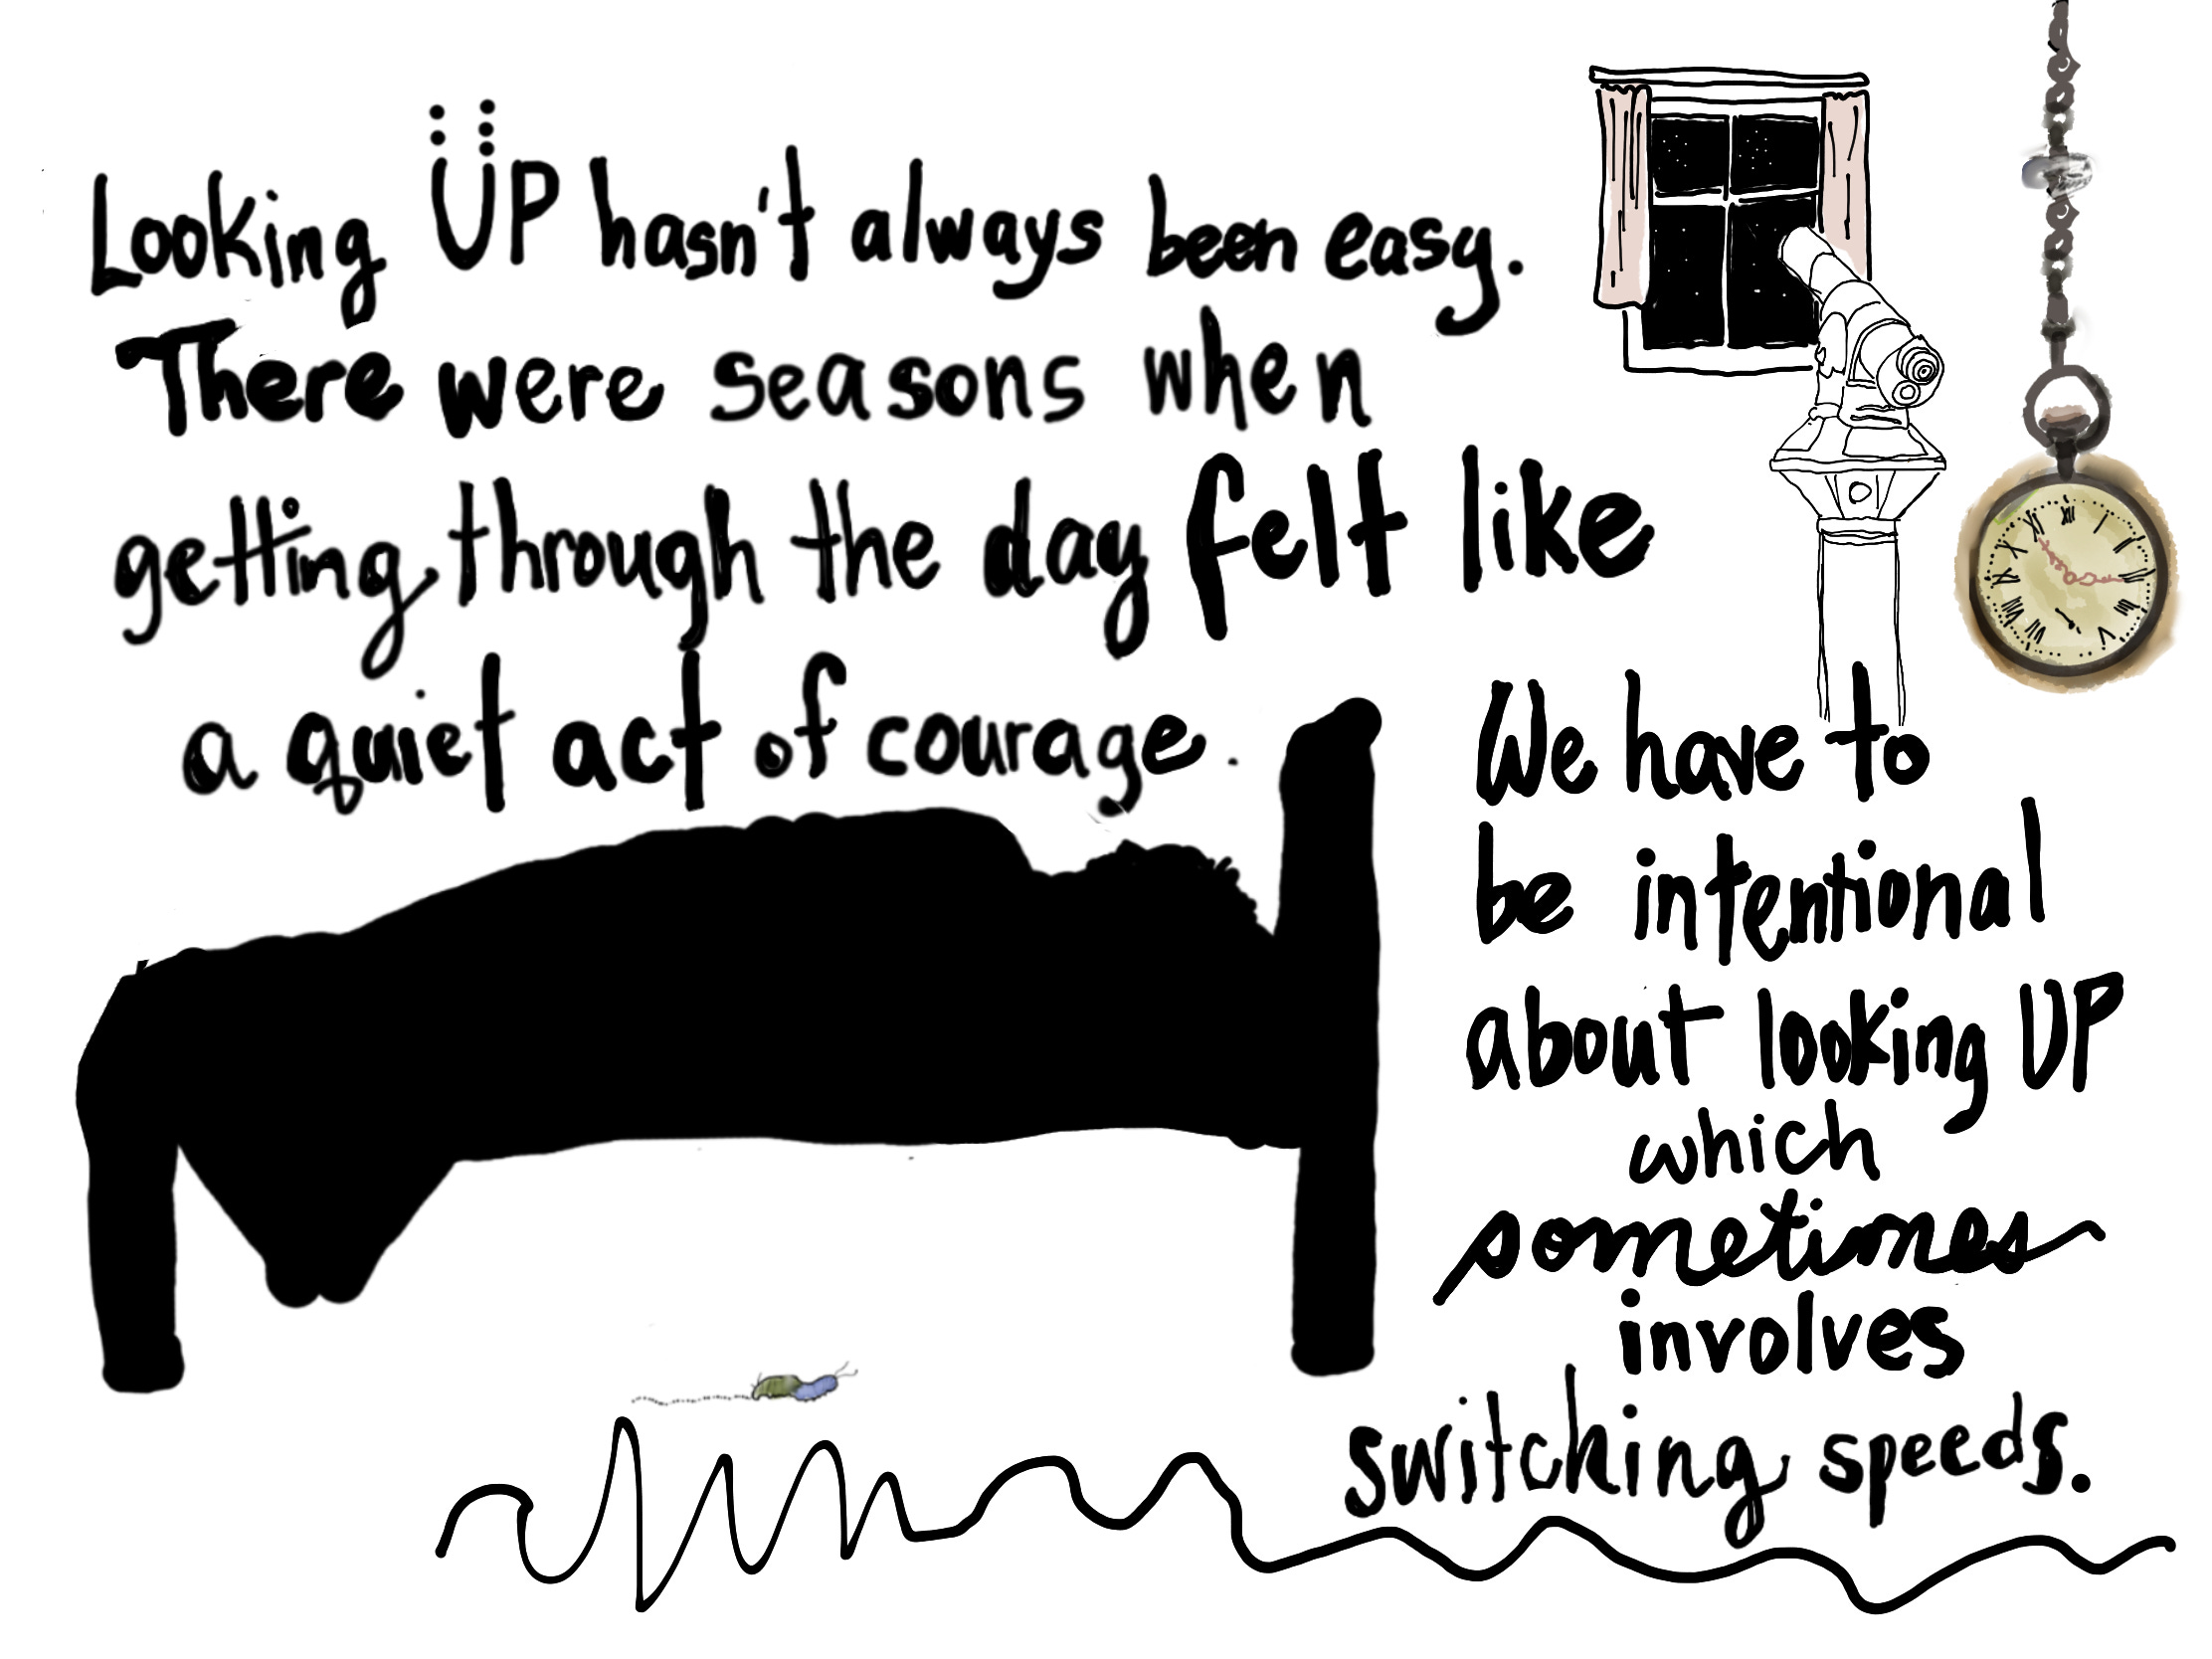 Looking UP hasn't always been easy.
There were seasons when
getting through the day felt like
a quiet act of courage.
We have to
be intentional
about looking UP
which
sometimes
involves
switching speeds.
XII
I
II
III
V
X
XI